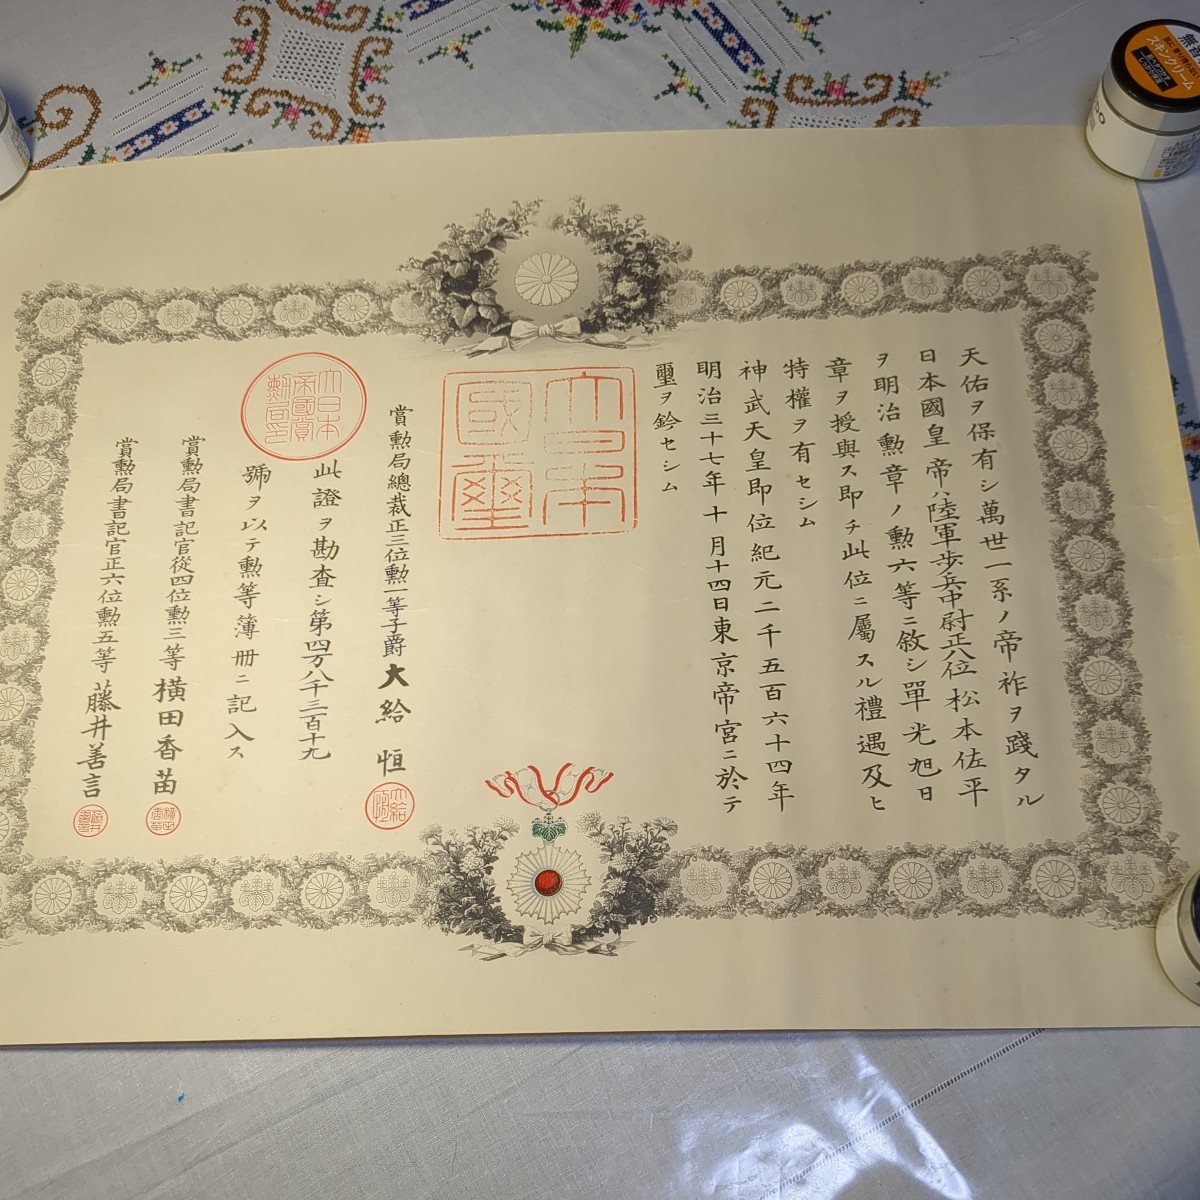 天佑ヲ保有シ萬世一系ノ帝祚ヲ踐タル
日本國皇帝ハ陸軍歩兵中尉正八位松本佐平
ヲ明治勲章ノ勲六等ニ敘シ單光旭日
章ヲ授與ス即チ此位ニ屬スル禮遇及ヒ
特權ヲ有セシム
神武天皇即位紀元二千五百六十四年
明治三十七年十月十四日東京帝宮ニ於テ
璽ヲ鈐セシム
大日本國璽
賞勲局總裁正三位勲一等子爵大給恒
大給恒
大日本帝國賞勲局印
此證ヲ勘査シ第四万八千三百十九
號ヲ以テ勲等簿冊ニ記入ス
賞勲局書記官從四位勲三等横田香苗
賞勲局書記官正六位勲五等藤井善言
スキンクリーム